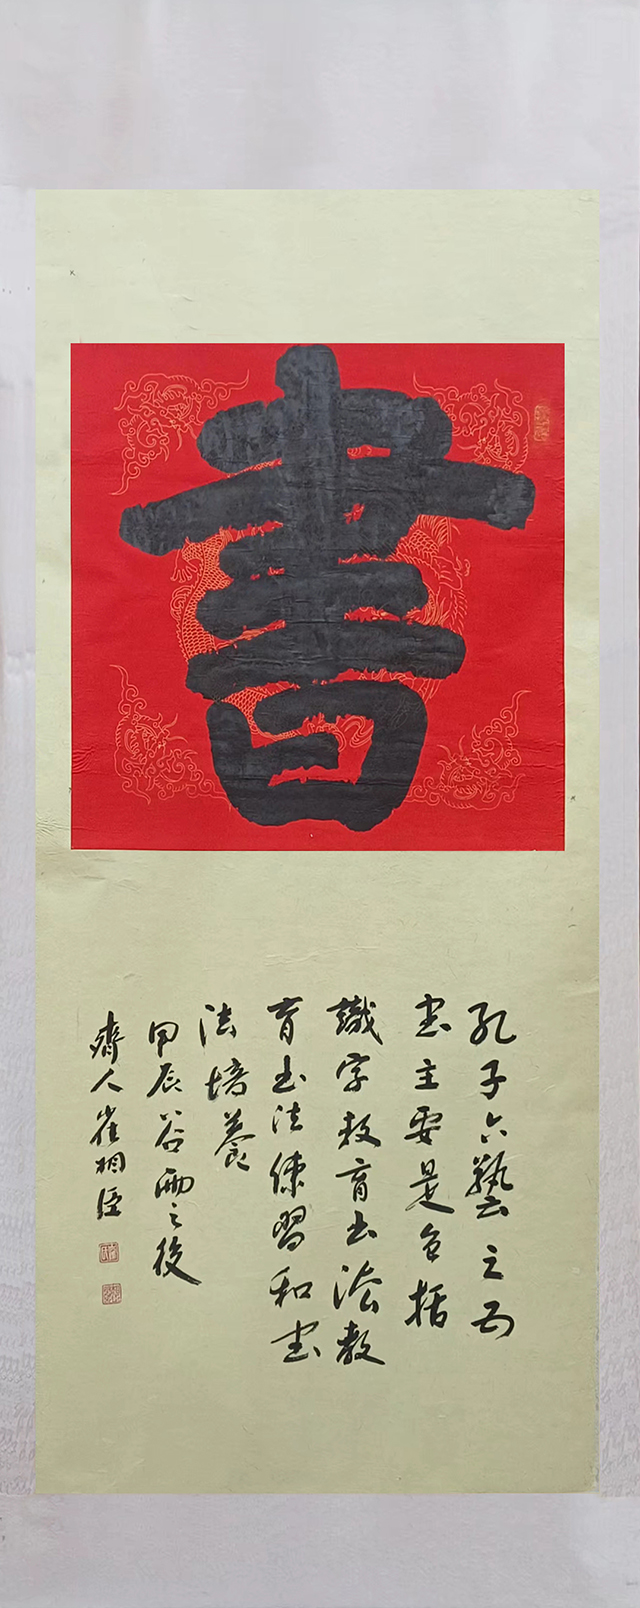 書
孔子六藝之五
書主要是包括
識字教育書法教
育書法練習和書
法培養
甲辰谷雨之後
齊人崔相